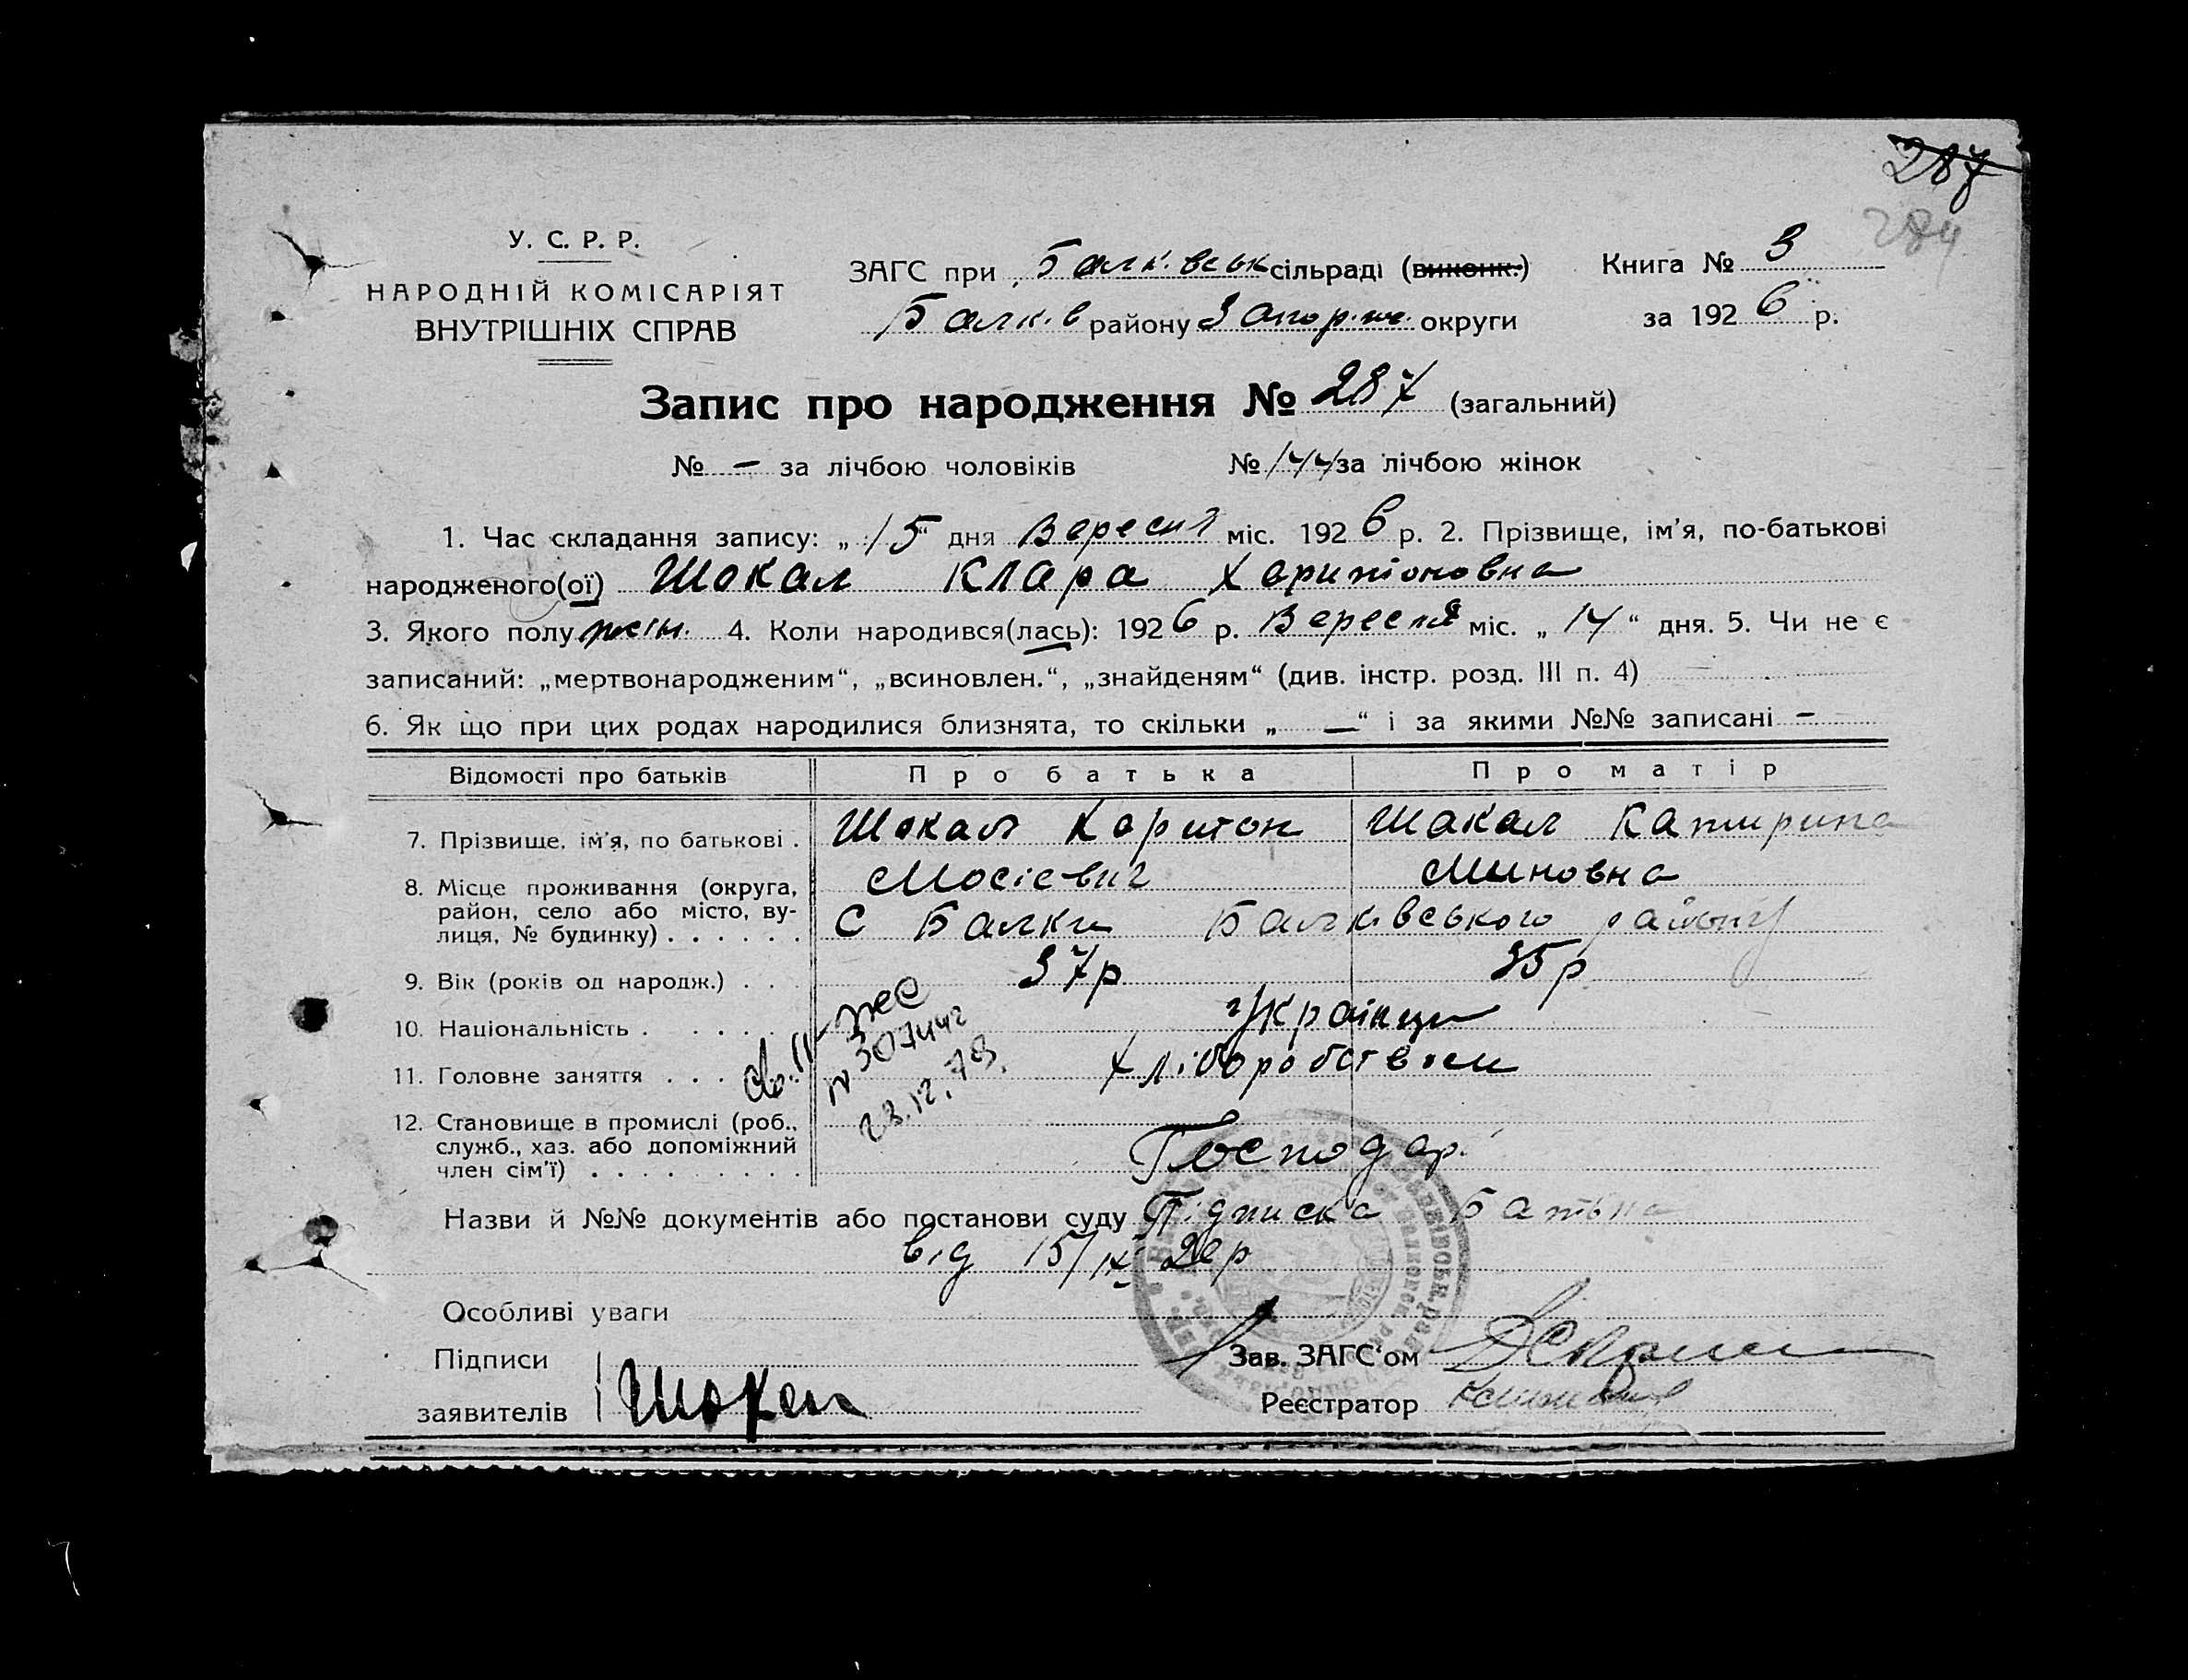 287
284
У. С. Р. Р.
НАРОДНІЙ КОМІСАРІЯТ
ВНУТРІШНІХ СПРАВ
ЗАГС при Балк.вськ сільраді (виконк.)
Балк.в району Запоріж. округи
Книга № 3
за 1926 р.
Запис про народження № 287 (загальний)
№ — за лічбою чоловіків № 144 за лічбою жінок
1. Час складання запису: „15“ дня Вересня міс. 1926 р. 2. Прізвище, ім'я, по-батькові
народженого(ої) Шокал Клара Харитоновна
3. Якого полу жін. 4. Коли народився(лась): 1926 р. Вересня міс. „14“ дня. 5. Чи не є
записаний: „мертвонародженим“, „всиновлен.“, „знайденям“ (див. інстр. розд. III п. 4)
6. Як що при цих родах народилися близнята, то скільки „—“ і за якими №№ записані —
Відомості про батьків Про батька Про матір
7. Прізвище, ім'я, по батькові . Шокал Харитон Шокал Катирина
Мосієвич Миновна
8. Місце проживання (округа,
район, село або місто, ву-
лиця, № будинку) . . . . . . С Балки Балк.вського району
9. Вік (років од народж.) . . . 37р 35р
10. Національність . . . . . Українци
11. Головне заняття . . . Хліборобством
12. Становище в промислі (роб.,
служб., хаз. або допоміжний
член сім'ї) . . . . . . . . . Господар.
св. II-жс
№ 307442
28.12.79.
Назви й №№ документів або постанови суду Підписка Батька
від 15/IX 26р
Особливі уваги
Підписи
заявителів Шокал
Зав. ЗАГС'ом
Реєстратор